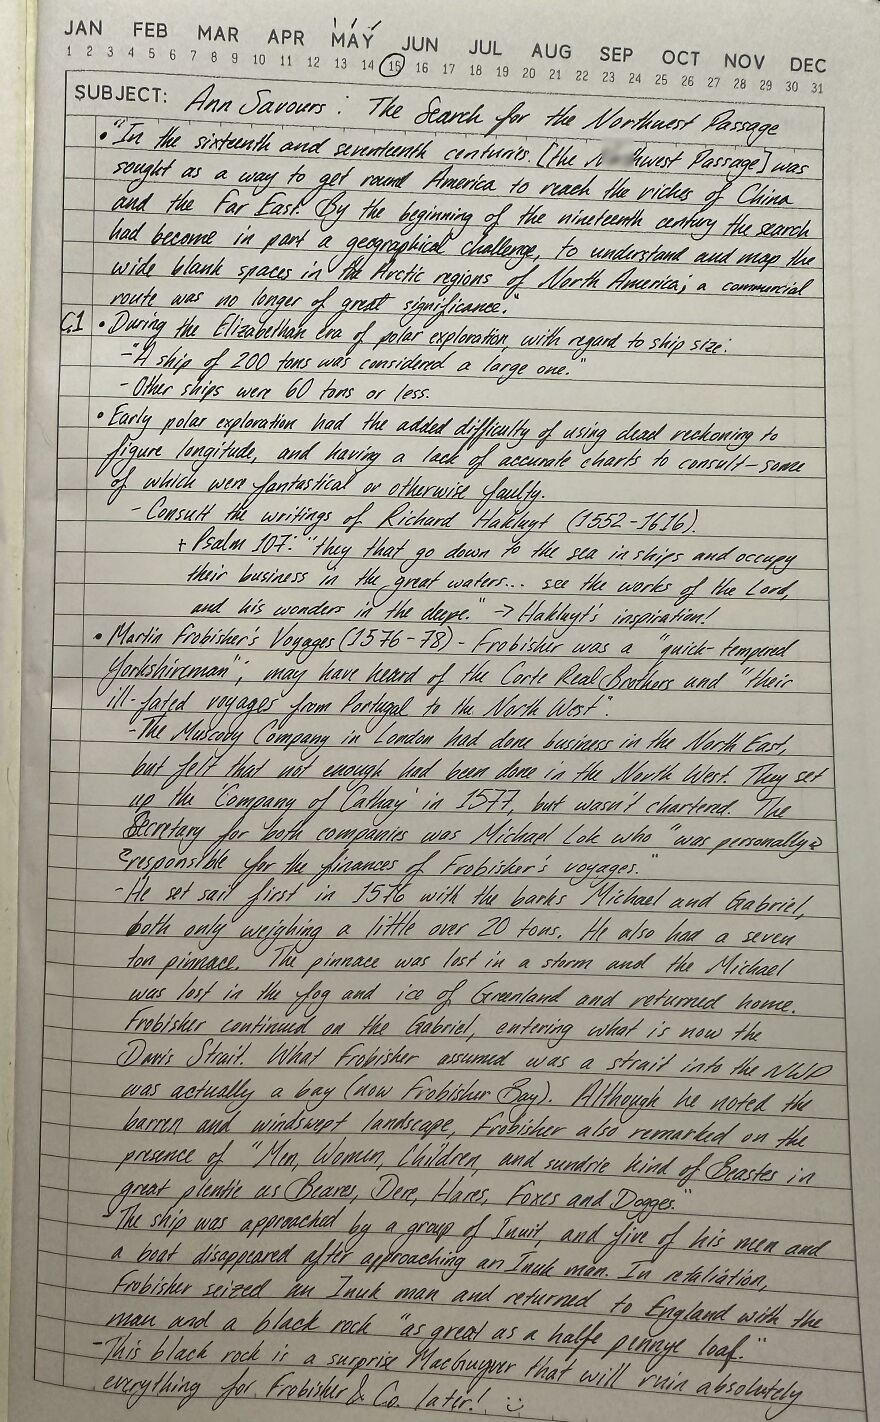 JAN FEB MAR APR MAY JUN JUL AUG SEP OCT NOV DEC
1 2 3 4 5 6 7 8 9 10 11 12 13 14 15 16 17 18 19 20 21 22 23 24 25 26 27 28 29 30 31
SUBJECT: Ann Savours: The Search for the Northwest Passage
• "In the sixteenth and seventeenth centuries. [the hwest Passage] was
sought as a way to get round America to reach the riches of China
and the Far East. By the beginning of the nineteenth century the search
had become in part a geographical challenge, to understand and map the
wide blank spaces in the Arctic regions of North America; a commercial
route was no longer of great significance."
C.1 • During the Elizabethan era of polar exploration, with regard to ship size:
- "A ship of 200 tons was considered a large one."
- Other ships were 60 tons or less.
• Early polar exploration had the added difficulty of using dead reckoning to
figure longitude, and having a lack of accurate charts to consult - some
of which were fantastical or otherwise faulty.
- Consult the writings of Richard Hakluyt (1552-1616).
+ Psalm 107: "they that go down to the sea in ships and occupy
their business in the great waters... see the works of the Lord,
and his wonders in the deepe." -> Hakluyt's inspiration!
• Martin Frobisher's Voyages (1576-78) - Frobisher was a "quick-tempered
Yorkshireman"; may have heard of the Corte Real Brothers and "their
ill-fated voyages from Portugal to the North West".
- The Muscovy Company in London had done business in the North East,
but felt that not enough had been done in the North West. They set
up the 'Company of Cathay' in 1577, but wasn't chartered. The
Secretary for both companies was Michael Lok who "was personally
responsible for the finances of Frobisher's voyages."
- He set sail first in 1576 with the barks Michael and Gabriel,
both only weighing a little over 20 tons. He also had a seven
ton pinnace. The pinnace was lost in a storm and the Michael
was lost in the fog and ice of Greenland and returned home.
Frobisher continued on the Gabriel, entering what is now the
Davis Strait. What Frobisher assumed was a strait into the NWP
was actually a bay (now Frobisher Bay). Although he noted the
barren and windswept landscape, Frobisher also remarked on the
presence of "Men, Women, Children, and sundrie kind of Beastes in
great plentie as Beares, Dere, Hares, Foxes and Dogges."
- The ship was approached by a group of Inuit and five of his men and
a boat disappeared after approaching an Inuk man. In retaliation,
Frobisher seized an Inuk man and returned to England with the
man and a black rock "as great as a halfe pennye loaf."
- This black rock is a surprise MacGuyver that will ruin absolutely
everything for Frobisher & Co. later! :)